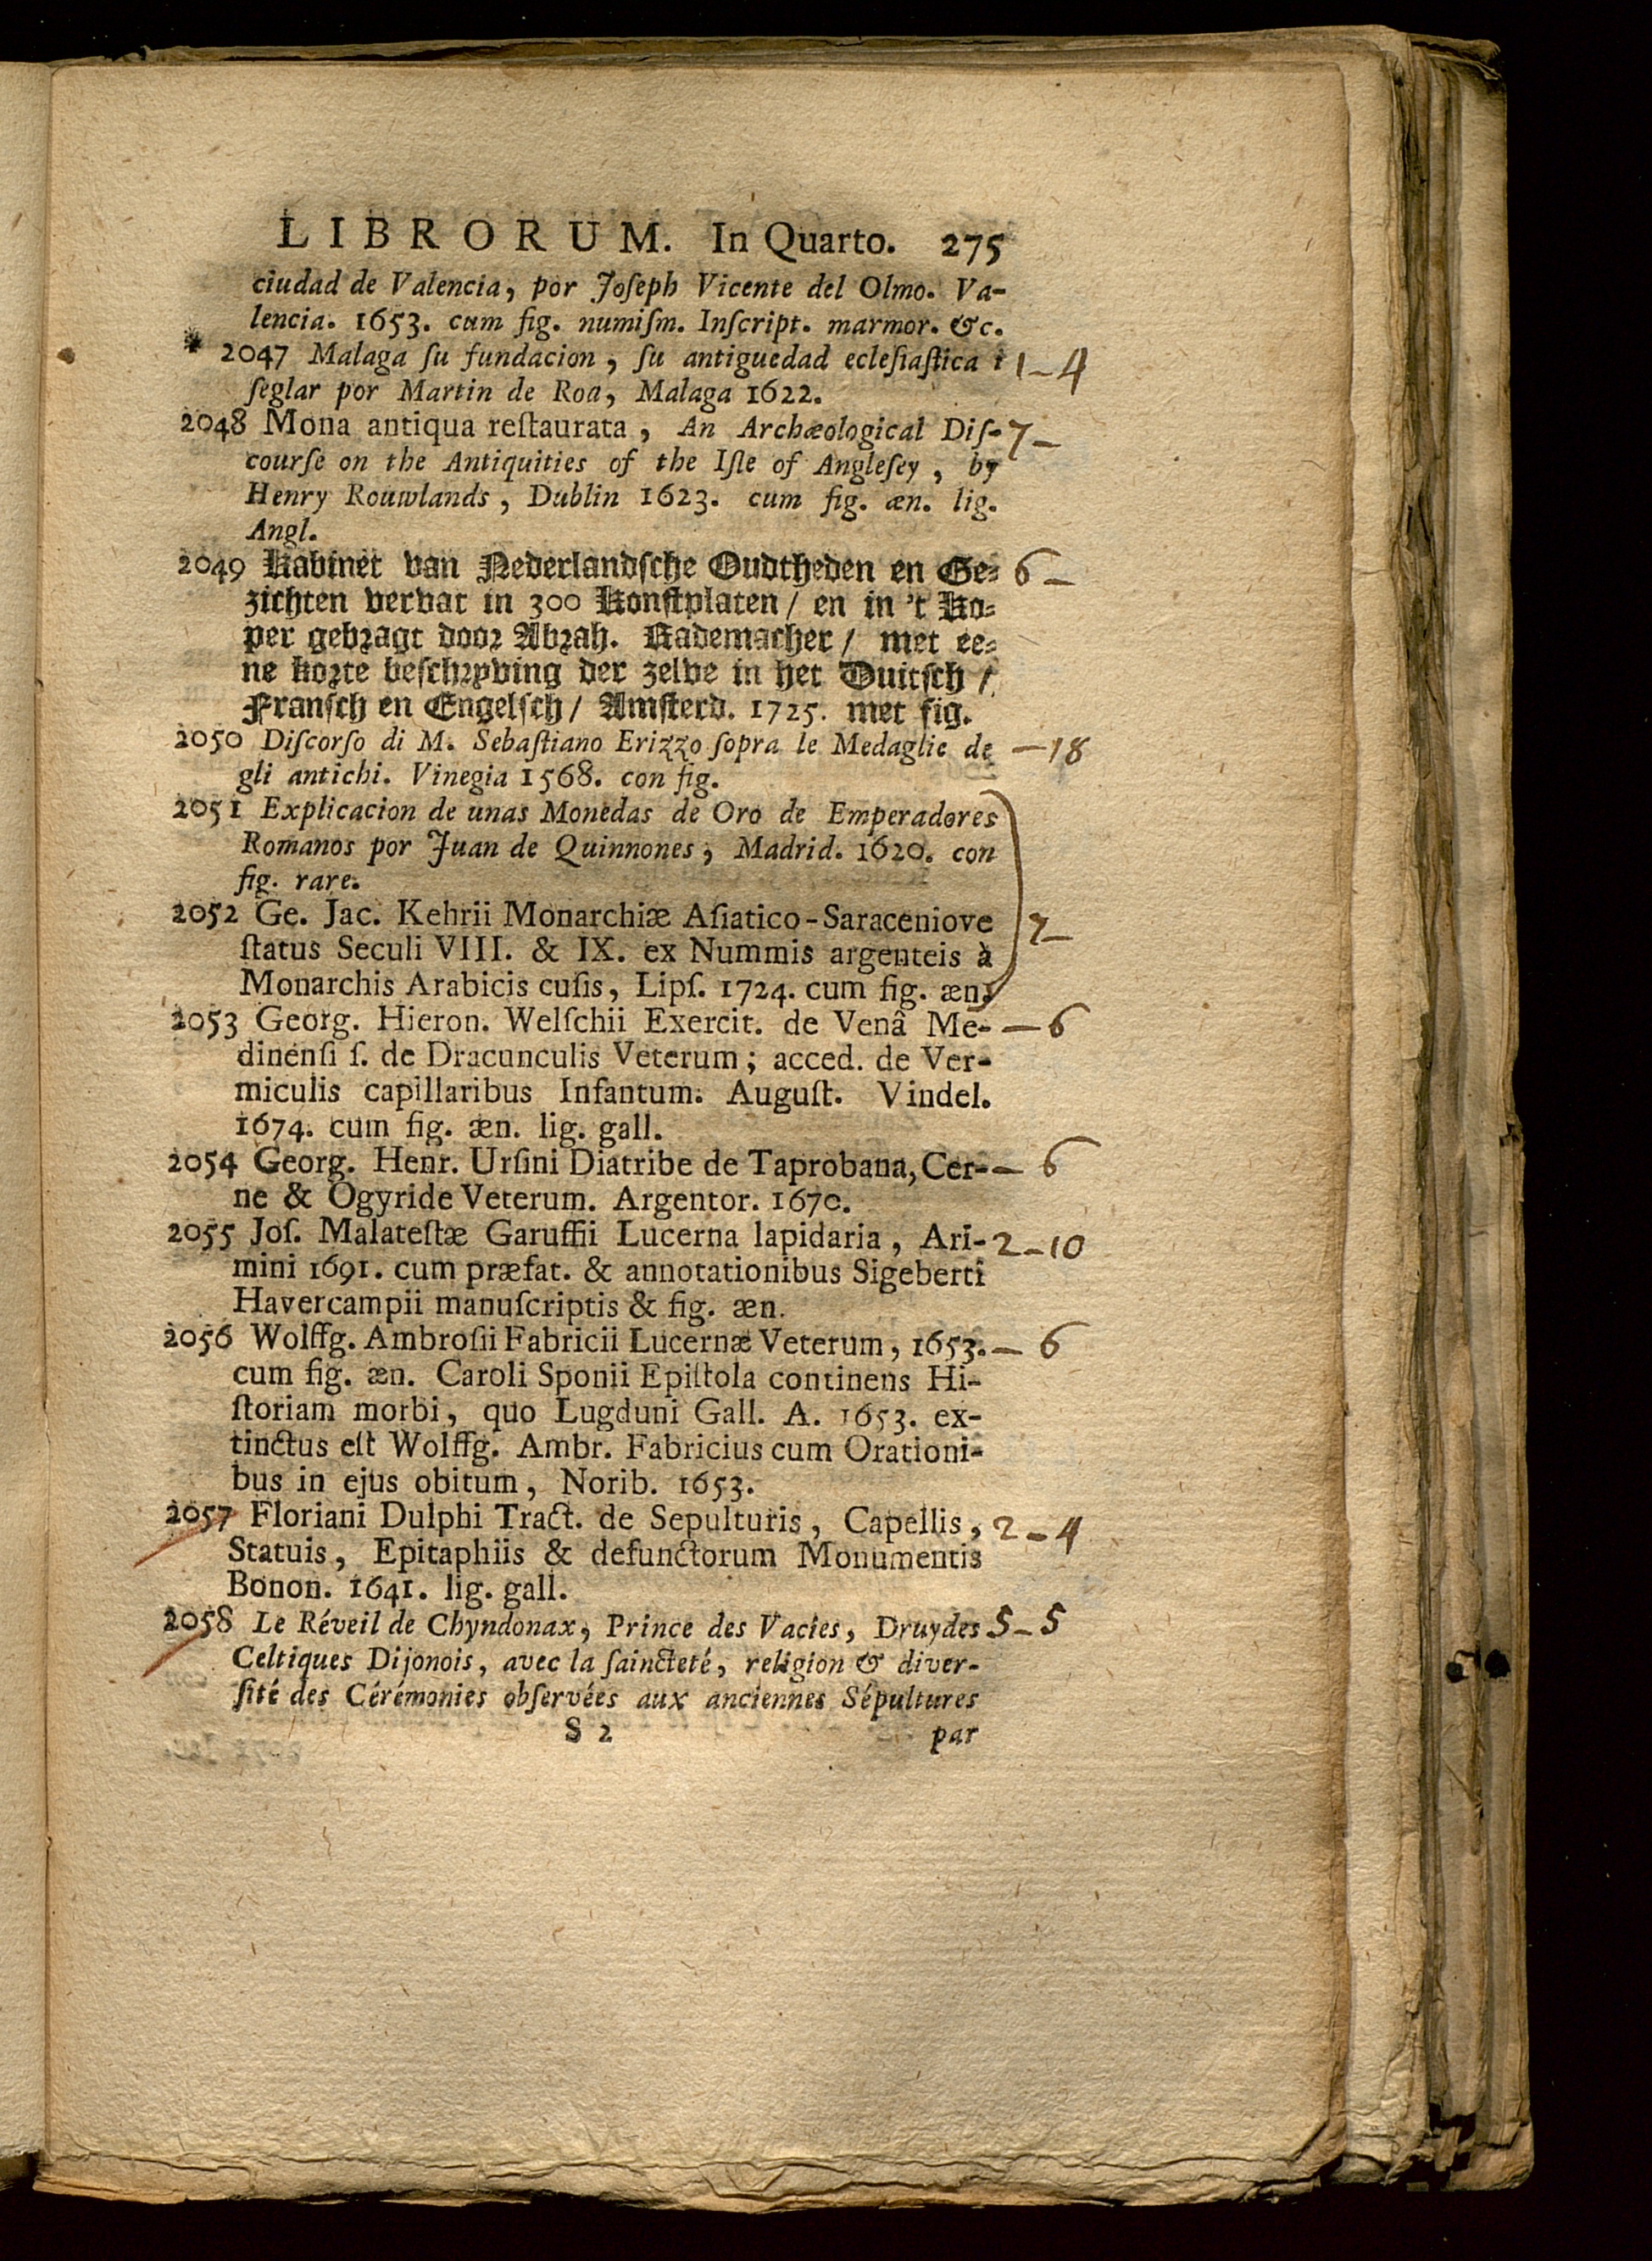 LIBRORUM. In Quarto. 275
ciudad de Valencia, por Joſeph Vicente del Olmo. Va-
lencia. 1653. cum fig. numiſm. Inſcript. marmor. &c.
* 2047 Malaga ſu fundacion, ſu antiguedad ecleſiaſtica i 1-4
ſeglar por Martin de Roa, Malaga 1622.
2048 Mona antiqua reſtaurata, An Archæological Diſ- 7-
courſe on the Antiquities of the Iſle of Angleſey, by
Henry Rouwlands, Dublin 1623. cum fig. æn. lig.
Angl.
2049 Kabinet van Nederlandſche Oudtheden en Ge- 6-
zichten vervat in 300 Konſtplaten / en in 't Ko-
per gebragt door Abrah. Rademacher / met ee-
ne korte beſchryving der zelve in het Duitſch /
Franſch en Engelſch / Amſterd. 1725. met fig.
2050 Diſcorſo di M. Sebaſtiano Erizzo ſopra le Medaglie de -18
gli antichi. Vinegia 1568. con fig.
2051 Explicacion de unas Monedas de Oro de Emperadores
Romanos por Juan de Quinnones, Madrid. 1620. con
fig. rare.
2052 Ge. Jac. Kehrii Monarchiæ Aſiatico-Saraceniove
ſtatus Seculi VIII. & IX. ex Nummis argenteis à
Monarchis Arabicis cuſis, Lipſ. 1724. cum fig. æn.
2053 Georg. Hieron. Welſchii Exercit. de Venâ Me- -6
dinenſi ſ. de Dracunculis Veterum; acced. de Ver-
miculis capillaribus Infantum. Auguſt. Vindel.
1674. cum fig. æn. lig. gall.
2054 Georg. Henr. Urſini Diatribe de Taprobana, Cer- - 6
ne & Ogyride Veterum. Argentor. 1670.
2055 Joſ. Malateſtæ Garuffii Lucerna lapidaria, Ari- 2-10
mini 1691. cum præfat. & annotationibus Sigeberti
Havercampii manuſcriptis & fig. æn.
2056 Wolffg. Ambroſii Fabricii Lucernæ Veterum, 1653. - 6
cum fig. æn. Caroli Sponii Epiſtola continens Hi-
ſtoriam morbi, quo Lugduni Gall. A. 1653. ex-
tinctus eſt Wolffg. Ambr. Fabricius cum Orationi-
bus in ejus obitum, Norib. 1653.
2057 Floriani Dulphi Tract. de Sepulturis, Capellis, 2-4
Statuis, Epitaphiis & defunctorum Monumentis
Bonon. 1641. lig. gall.
2058 Le Réveil de Chyndonax, Prince des Vacies, Druydes 5-5
Celtiques Dijonois, avec la ſaincteté, religion & diver-
ſité des Cérémonies obſervées aux anciennes Sépultures
S 2 par